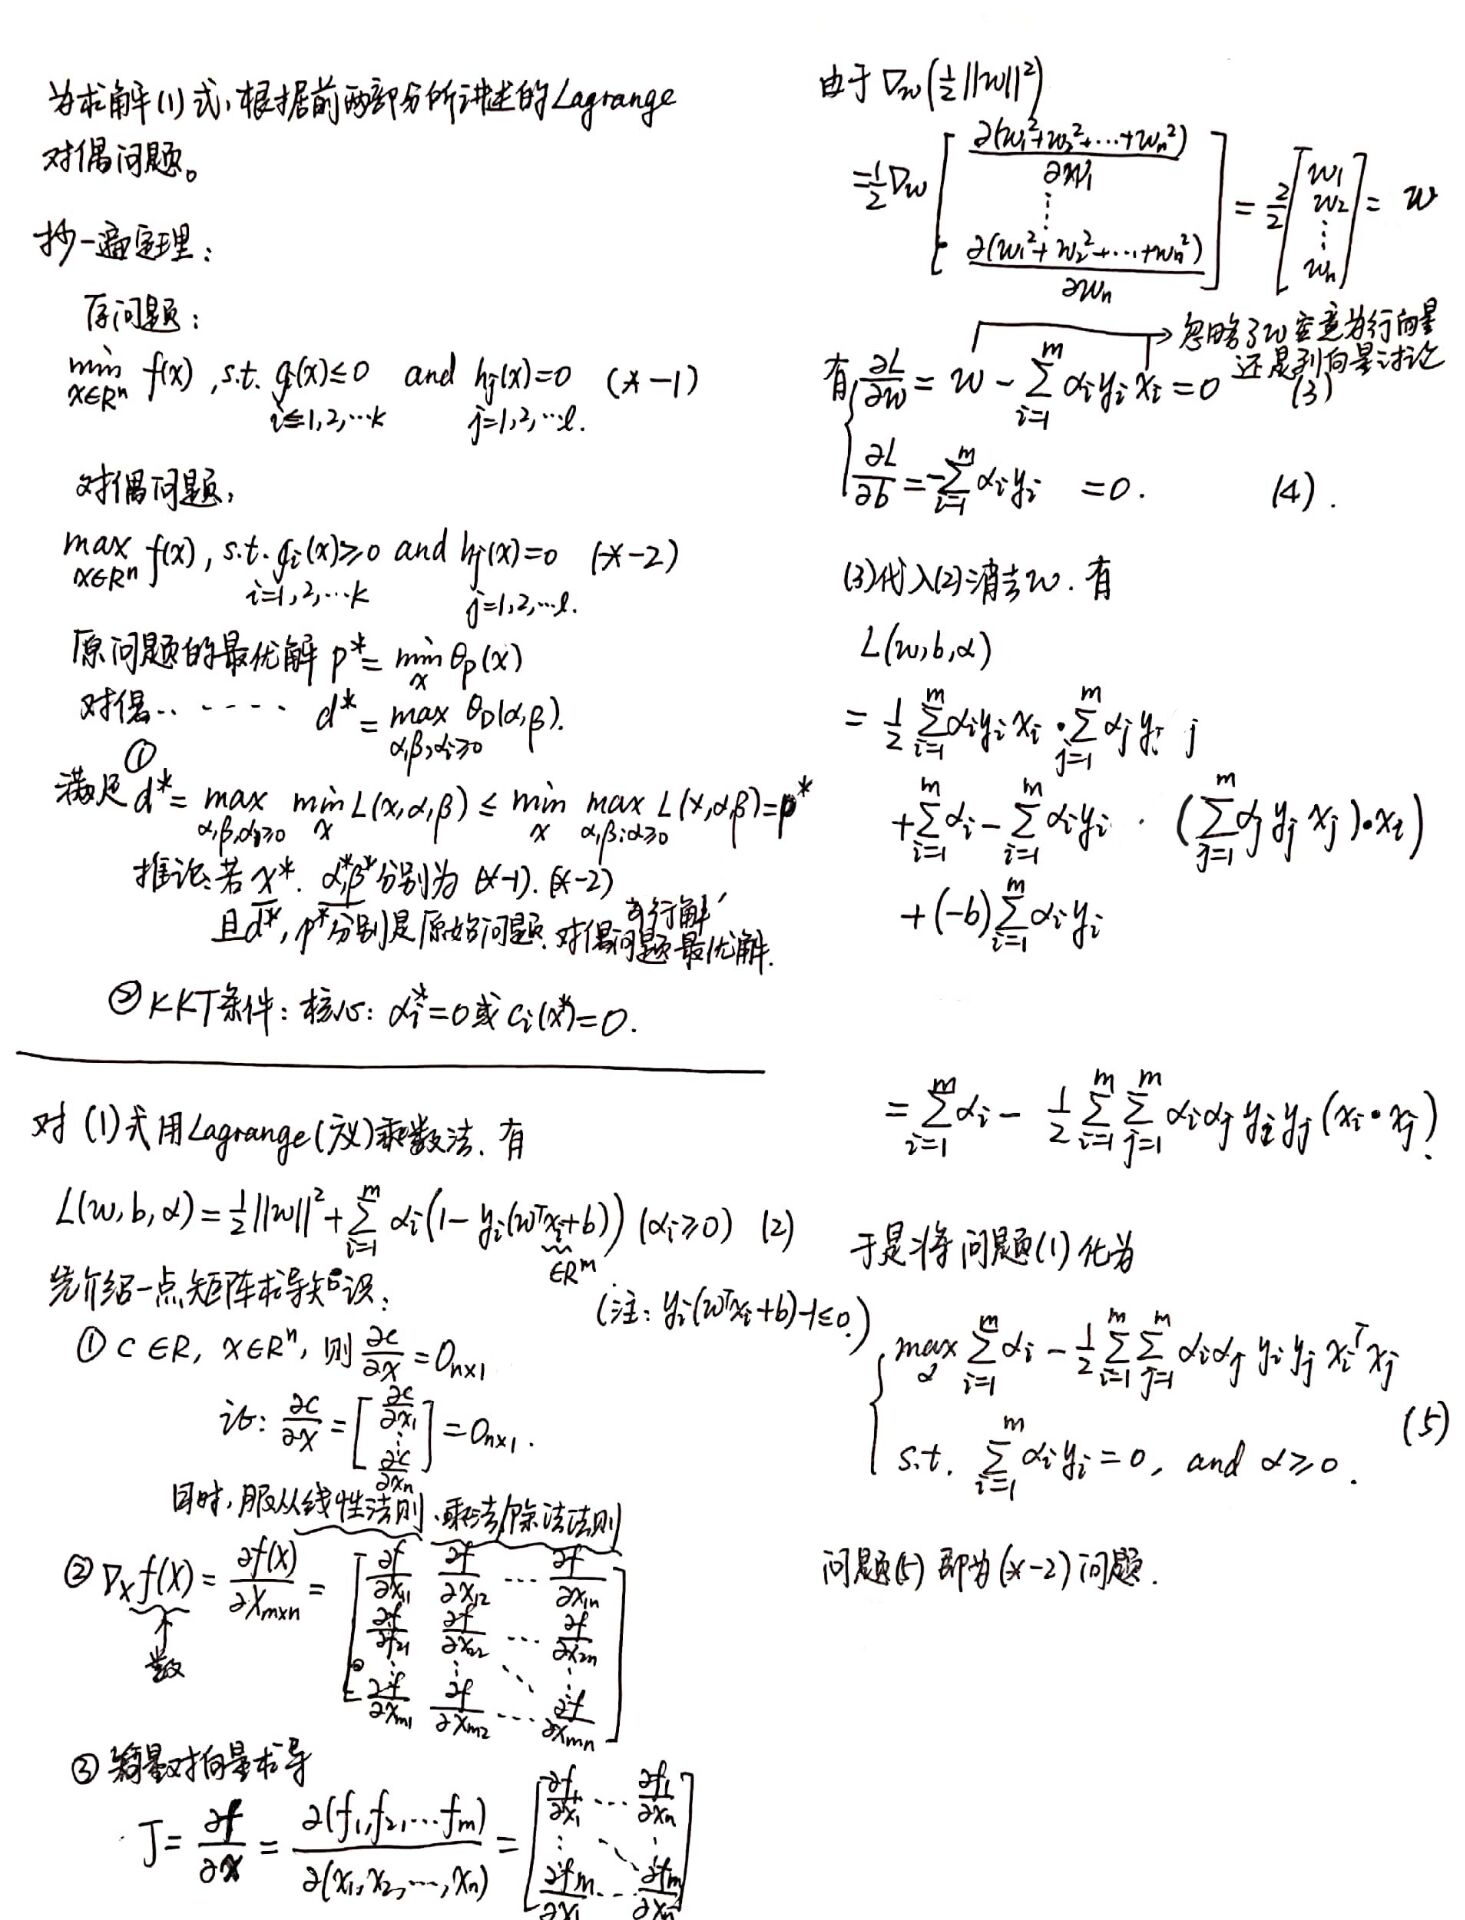 为求解(1)式,根据前两部分所讲述的Lagrange
对偶问题。
抄一遍定理:
原问题:
min f(x), s.t. gᵢ(x)≤0 and hⱼ(x)=0 (*-1)
x∈Rⁿ i=1,2,…k j=1,2,…l.
对偶问题,
max f(x), s.t. gᵢ(x)≥0 and hⱼ(x)=0 (*-2)
x∈Rⁿ i=1,2,…k j=1,2,…l.
原问题的最优解 p* = min_x θ_P(x)
对偶……… d* = max_{α,β,αᵢ≥0} θ_D(α,β).
①
满足 d* = max_{α,β,αᵢ≥0} min_x L(x,α,β) ≤ min_x max_{α,β;α≥0} L(x,α,β) = p*
推论:若 x*. α*,β* 分别为 (*-1). (*-2)
可行解,
且d*, p*分别是原始问题、对偶问题最优解.
②KKT条件:核心: αᵢ*=0或 cᵢ(x*)=0.
对 (1)式用Lagrange(广义)乘数法. 有
L(w,b,α) = 1/2 ||w||² + Σ_{i=1}^m αᵢ(1 - yᵢ(wᵀxᵢ+b)) (αᵢ≥0) (2)
∈Rᵐ
先介绍一点矩阵求导知识:
(注: yᵢ(wᵀxᵢ+b)-1≤0.)
① C∈R, x∈Rⁿ, 则 ∂c/∂x = 0_{n×1}
证: ∂c/∂x = [∂c/∂x₁ ⋮ ∂c/∂xₙ] = 0_{n×1}.
同时,服从线性法则、乘法/除法法则
② ∇ₓf(x) = ∂f(x)/∂X_{m×n} = [∂f/∂x₁₁ ∂f/∂x₁₂ … ∂f/∂x₁ₙ
∂f/∂f₂₁ ∂f/∂x₂₂ … ∂f/∂x₂ₙ
数
⋮ ⋮ ⋱ ⋮
∂f/∂x_{m1} ∂f/∂x_{m2} … ∂f/∂x_{mn}]
③ 向量对向量求导
J = ∂f/∂x = ∂(f₁,f₂,…fₘ)/∂(x₁,x₂,…,xₙ) = [∂f₁/∂x₁ … ∂f₁/∂xₙ
⋮ ⋱ ⋮
∂fₘ/∂x₁ … ∂fₘ/∂xₙ]
由于 ∇_w(1/2||w||²)
= 1/2 ∇_w [∂(w₁²+w₂²+…+wₙ²)/∂w₁ ⋮ ∂(w₁²+w₂²+…+wₙ²)/∂wₙ] = 2/2 [w₁ w₂ ⋮ wₙ] = w
→忽略了w究竟为行向量
还是列向量讨论
有{ ∂L/∂w = w - Σ_{i=1}^m αᵢyᵢxᵢ = 0 (3)
∂L/∂b = -Σ_{i=1}^m αᵢyᵢ = 0. (4).
(3)代入(2)消去w. 有
L(w,b,α)
= 1/2 Σ_{i=1}^m αᵢyᵢxᵢ · Σ_{j=1}^m αⱼyⱼ j
+ Σ_{i=1}^m αᵢ - Σ_{i=1}^m αᵢyᵢ · (Σ_{j=1}^m αⱼyⱼxⱼ)·xᵢ)
+ (-b) Σ_{i=1}^m αᵢyᵢ
= Σ_{i=1}^m αᵢ - 1/2 Σ_{i=1}^m Σ_{j=1}^m αᵢαⱼyᵢyⱼ(xᵢ·xⱼ).
于是将问题(1)化为
{ max_α Σ_{i=1}^m αᵢ - 1/2 Σ_{i=1}^m Σ_{j=1}^m αᵢαⱼ yᵢyⱼ xᵢᵀxⱼ
(5)
s.t. Σ_{i=1}^m αᵢyᵢ = 0, and α≥0.
问题(5) 即为 (*-2)问题.